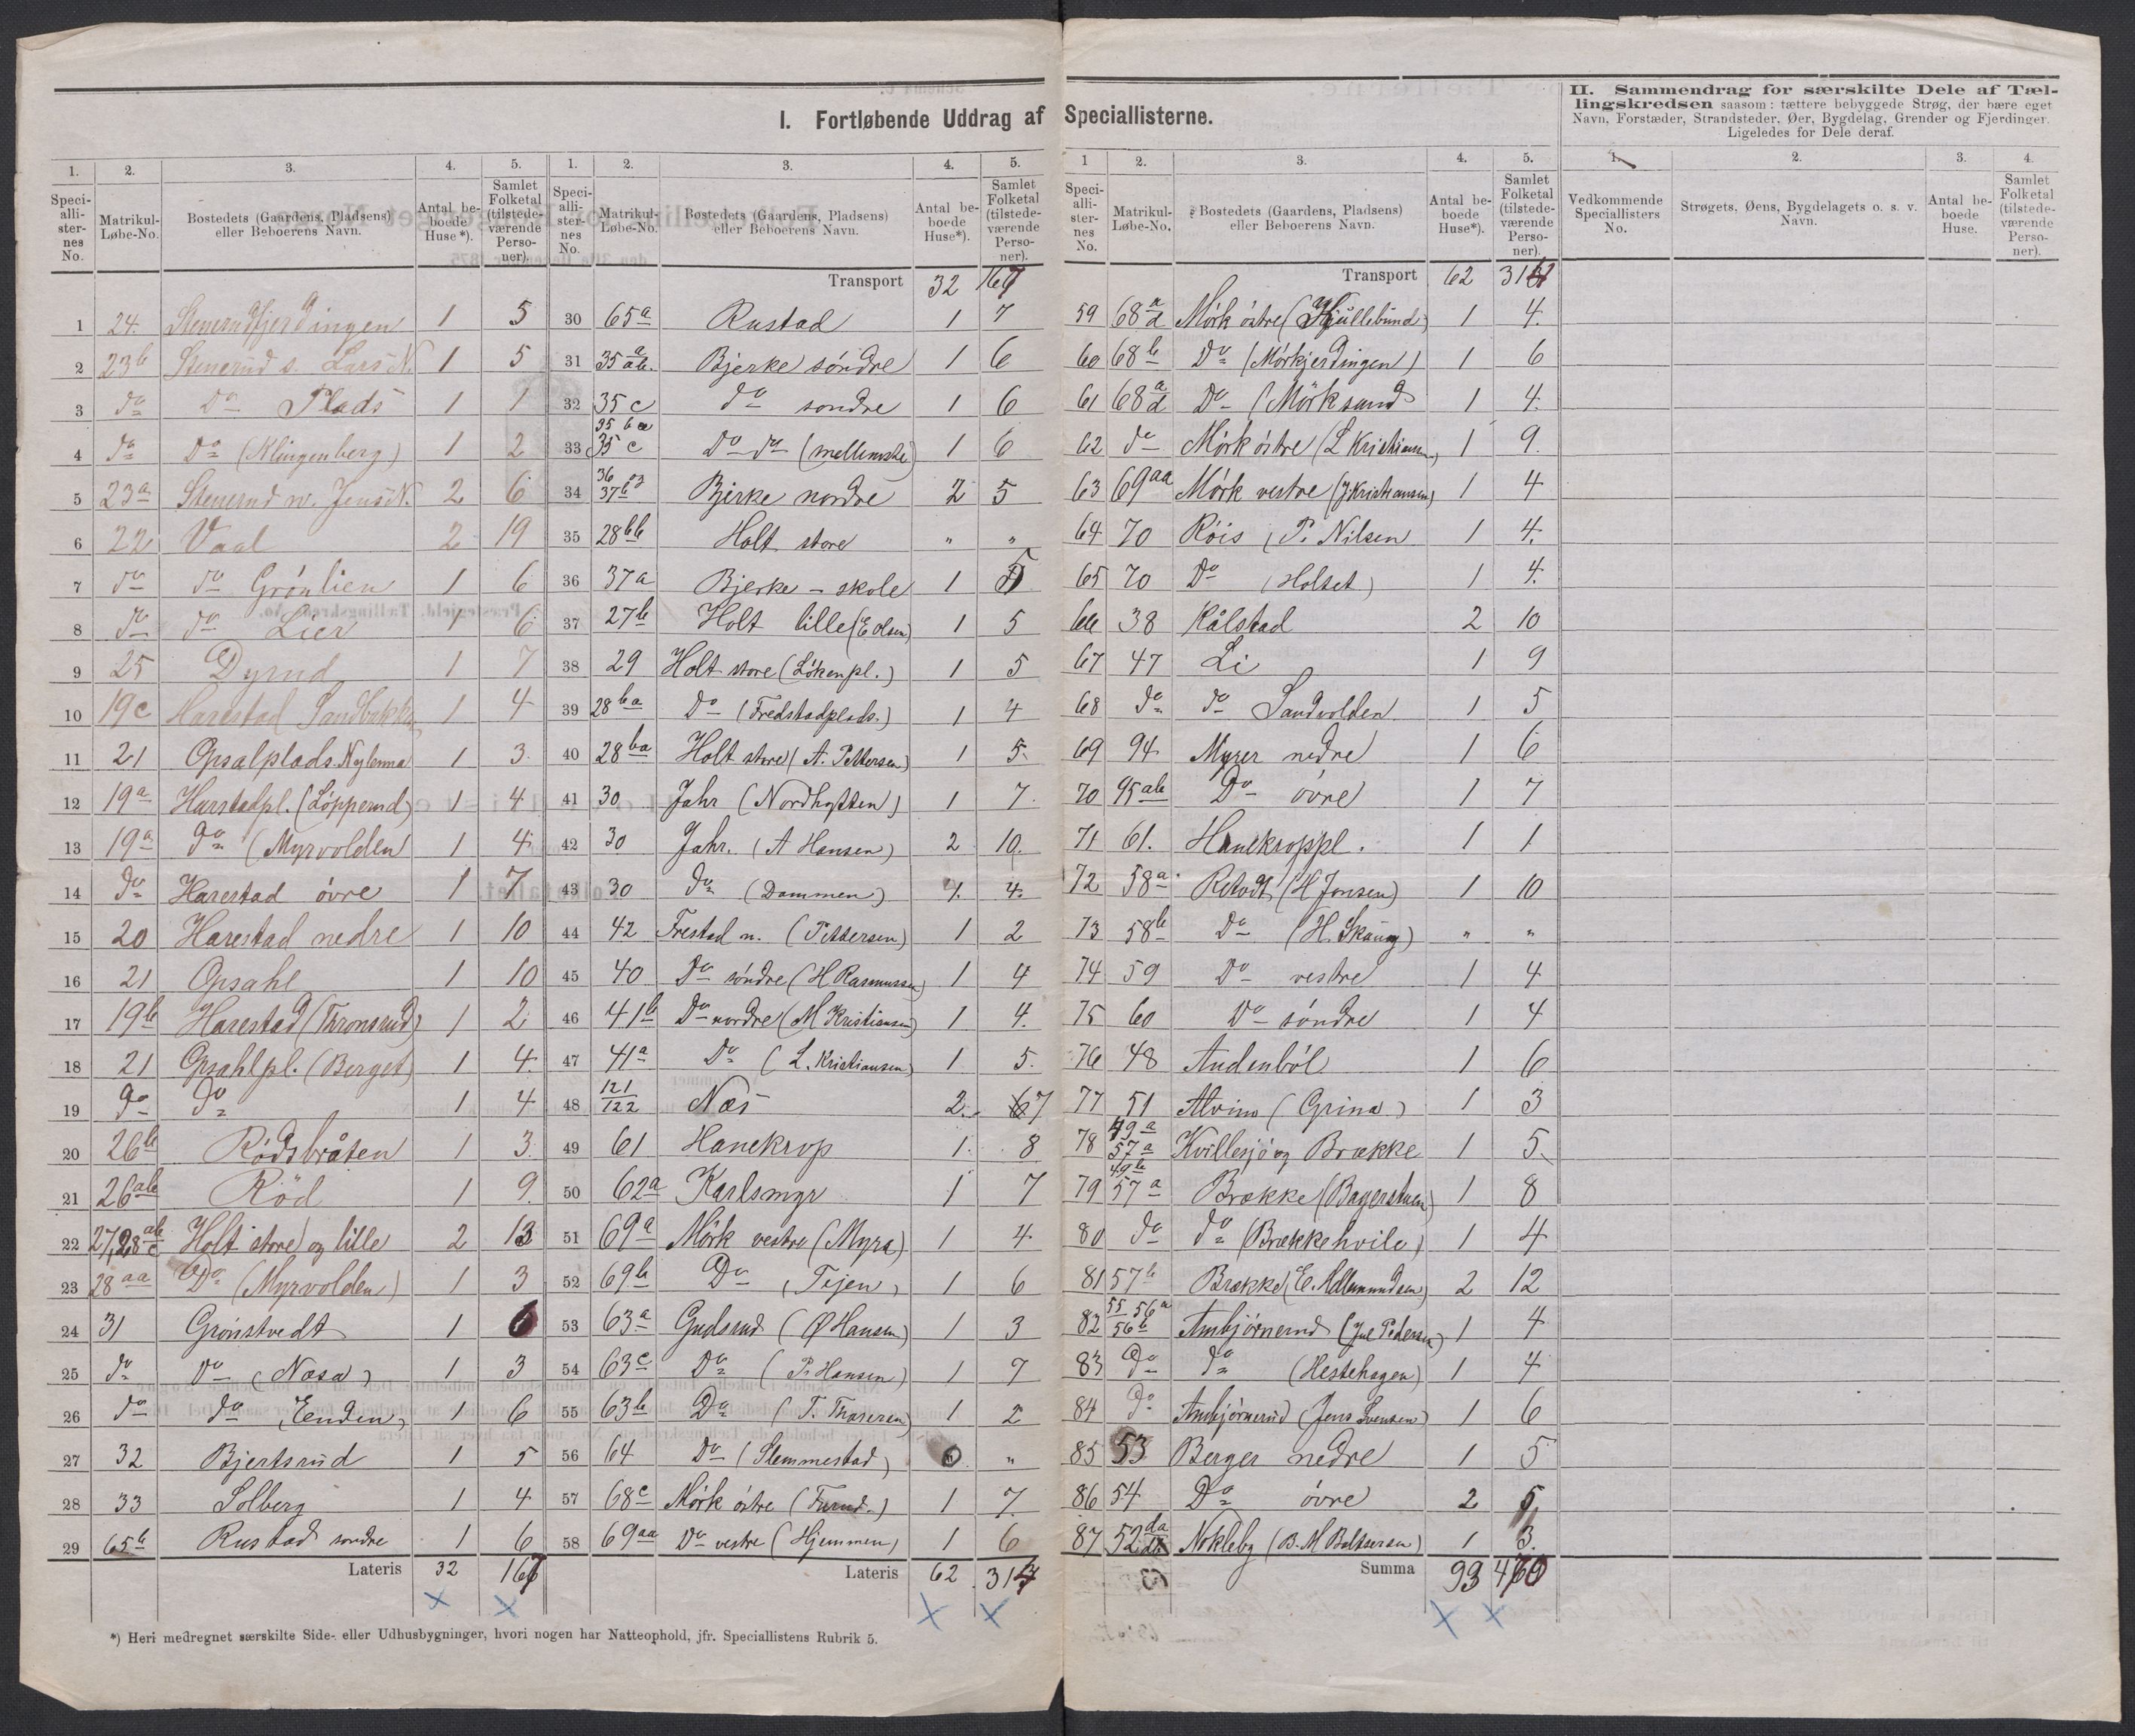 I. Fortløbende Uddrag af Speciallisterne.
II. Sammendrag for særskilte Dele af Tæl-
lingskredsen saasom: tættere bebyggede Strøg, der bære eget
Navn, Forstæder, Strandsteder, Øer, Bygdelag, Grender og Fjerdinger.
Ligeledes for Dele deraf.
1. 2. 3. 4. 5.
Speci-alli-ster-nes No. Matrikul-Løbe-No. Bostedets (Gaardens, Pladsens) eller Beboerens Navn. Antal be-boede Huse*). Samlet Folketal (tilstede-værende Perso-ner).
1 24. Stenerudfjerdingen 1 5
2 23b Stenerud s. Lars N. 1 5
3 do Do Plads 1 1
4 do Do (Klingenberg) 1 2
5 23a Stenerud n. Jens N. 2 6
6 22 Vaal 2 19
7 do do Grönlien 1 6
8 do do Lier 1 6
9 25 Dyrud 1 7
10 19c Harestad Sandbakken 1 4
11 21 Opsalplads Nylenna 1 3.
12 19a Harstadpl. (Löpperud) 1 4
13 19a do (Myrvolden 1 4
14 do Harestad övre 1 7
15 20 Harestad nedre 1 10
16 21 Opsahl 1 10
17 19b Harestad (Thronsrud) 1 2
18 21 Opsahlpl. (Berget) 1 4.
19 do do 1 4
20 26b Rödsbråten 1 3.
21 26ab Röd 1 9.
22 27,28 ab c Holt store og lille 2 13
23 28aa Do (Myrvolden) 1 3
24 31 Grönstvedt 1 6
25 do Do (Næsa) 1 3
26 do do (Enden) 1 6
27 32 Bjertsrud 1 5
28 33 Solberg 1 4
29 65b Rustad søndre 1 6
Lateris 32 167
1. 2. 3. 4. 5.
Speci-alli-ster-nes No. Matrikul-Løbe-No. Bostedets (Gaardens, Pladsens) eller Beboerens Navn. Antal be-boede Huse*). Samlet Folketal (tilstede-værende Perso-ner).
Transport 32 167
30 65a Rustad 1 7
31 35 a ab. Bjerke söndre 1 6
32 35 c do sondre 1 6
33 35 c Do do (mellemste) 1 6
34 36 37b Bjerke nordre 2 5
35 28bb Holt store " "
36 37a Bjerke - skole 1 5
37 27b Holt lille (E Olsen) 1 5
38 29 Holt store (Lökenpl.) 1 5
39 28ba Do (Fredstadplads.) 1 4
40 28ba Holt store (A. Pettersen) 1 5.
41 30 Jahr (Nordhytten) 1 7.
42 30 Jahr. (A Hansen) 2 10.
43 30 do (Dammen) 1. 4.
44 42 Frestad n. (Pettersen) 1 2
45 40 Do söndre (H Rasmussen) 1 4
46 41b Do nordre (M Kristiansen) 1 4.
47 41a Do (L. Kristiansen) 1. 5.
48 121 122 Næs 2. 7
49 61 Hanekrop 1. 8
50 62a Karlsmyr 1 7
51 69a Mörk vestre (Myra) 1 4.
52 69b Do (Tejen) 1 6
53 63a Gudsrud (Ø Hansen) 1 3
54 63c Do (P. Hansen) 1 7
55 63b Do (T. Thoresen) 1 2
56 64 Do (Slemmestad) 0 "
57 68c Mörk östre (Furud.) 1 7.
58 69aa Do vestre (Hjemmen) 1 6
Lateris 62 314
1 2. 3. 4. 5.
Speci-alli-ster-nes No. Matrikul-Løbe-No. Bostedets (Gaardens, Pladsens) eller Beboerens Navn. Antal be-boede Huse*). Samlet Folketal (tilstede-værende Perso-ner).
Transport 62 314
59 68 a d Mörk östre (Kjüllebund) 1 4.
60 68b Do (Mörkjerdingen) 1 6
61 68 a d Do (Mörksund 1 4.
62 do Mörk östre (L Kristiansen) 1 9.
63 69aa Mörk vestre (J Kristiansen) 1 4
64 70 Röis (P. Nilsen 1 4.
65 70 Do (Holset) 1 4.
66 38 Kålstad 2 10
67 47 Li 1 9
68 do do Sandvolden 1 5
69 94 Myrer nedre 1 6
70 95ab Do övre 1 7
71 61. Hanekroppl. 1 1
72 58a. Retvedt (H Jonsen) 1 10
73 58b Do (H. Skaug) " "
74 59 Do vestre 1 4
75 60 Do söndre 1 4
76 48 Audenböl 1 6
77 51 Alvim (Grina) 1 3
78 49a 57a Kvillesjö og Brække 1 5.
79 49b 57a Brække (Bagerstuen) 1 8
80 do do (Brækkehvile) 1 4
81 57b Brække (E. Adlemundsen) 2 12
82 55 56a 56b Ambjörnerud (Jul Pedersen) 1 4
83 do do (Hestehagen) 1 4
84 do Ambjörnerud (Jens Svensen) 1 6
85 53 Berger nedre 1 5
86 54 Do övre 2 5
87 52 Nökleby (B. M Baltsersen) 1 3.
Summa 93 460
1. 2. 3. 4.
Vedkommende Speciallisters No. Strøgets, Øens, Bygdelagets o. s. v. Navn. Antal be-boede Huse. Samlet Folketal (tilstede-værende Perso-ner).
*) Heri medregnet særskilte Side- eller Udhusbygninger, hvori nogen har Natteophold, jfr. Speciallistens Rubrik 5.